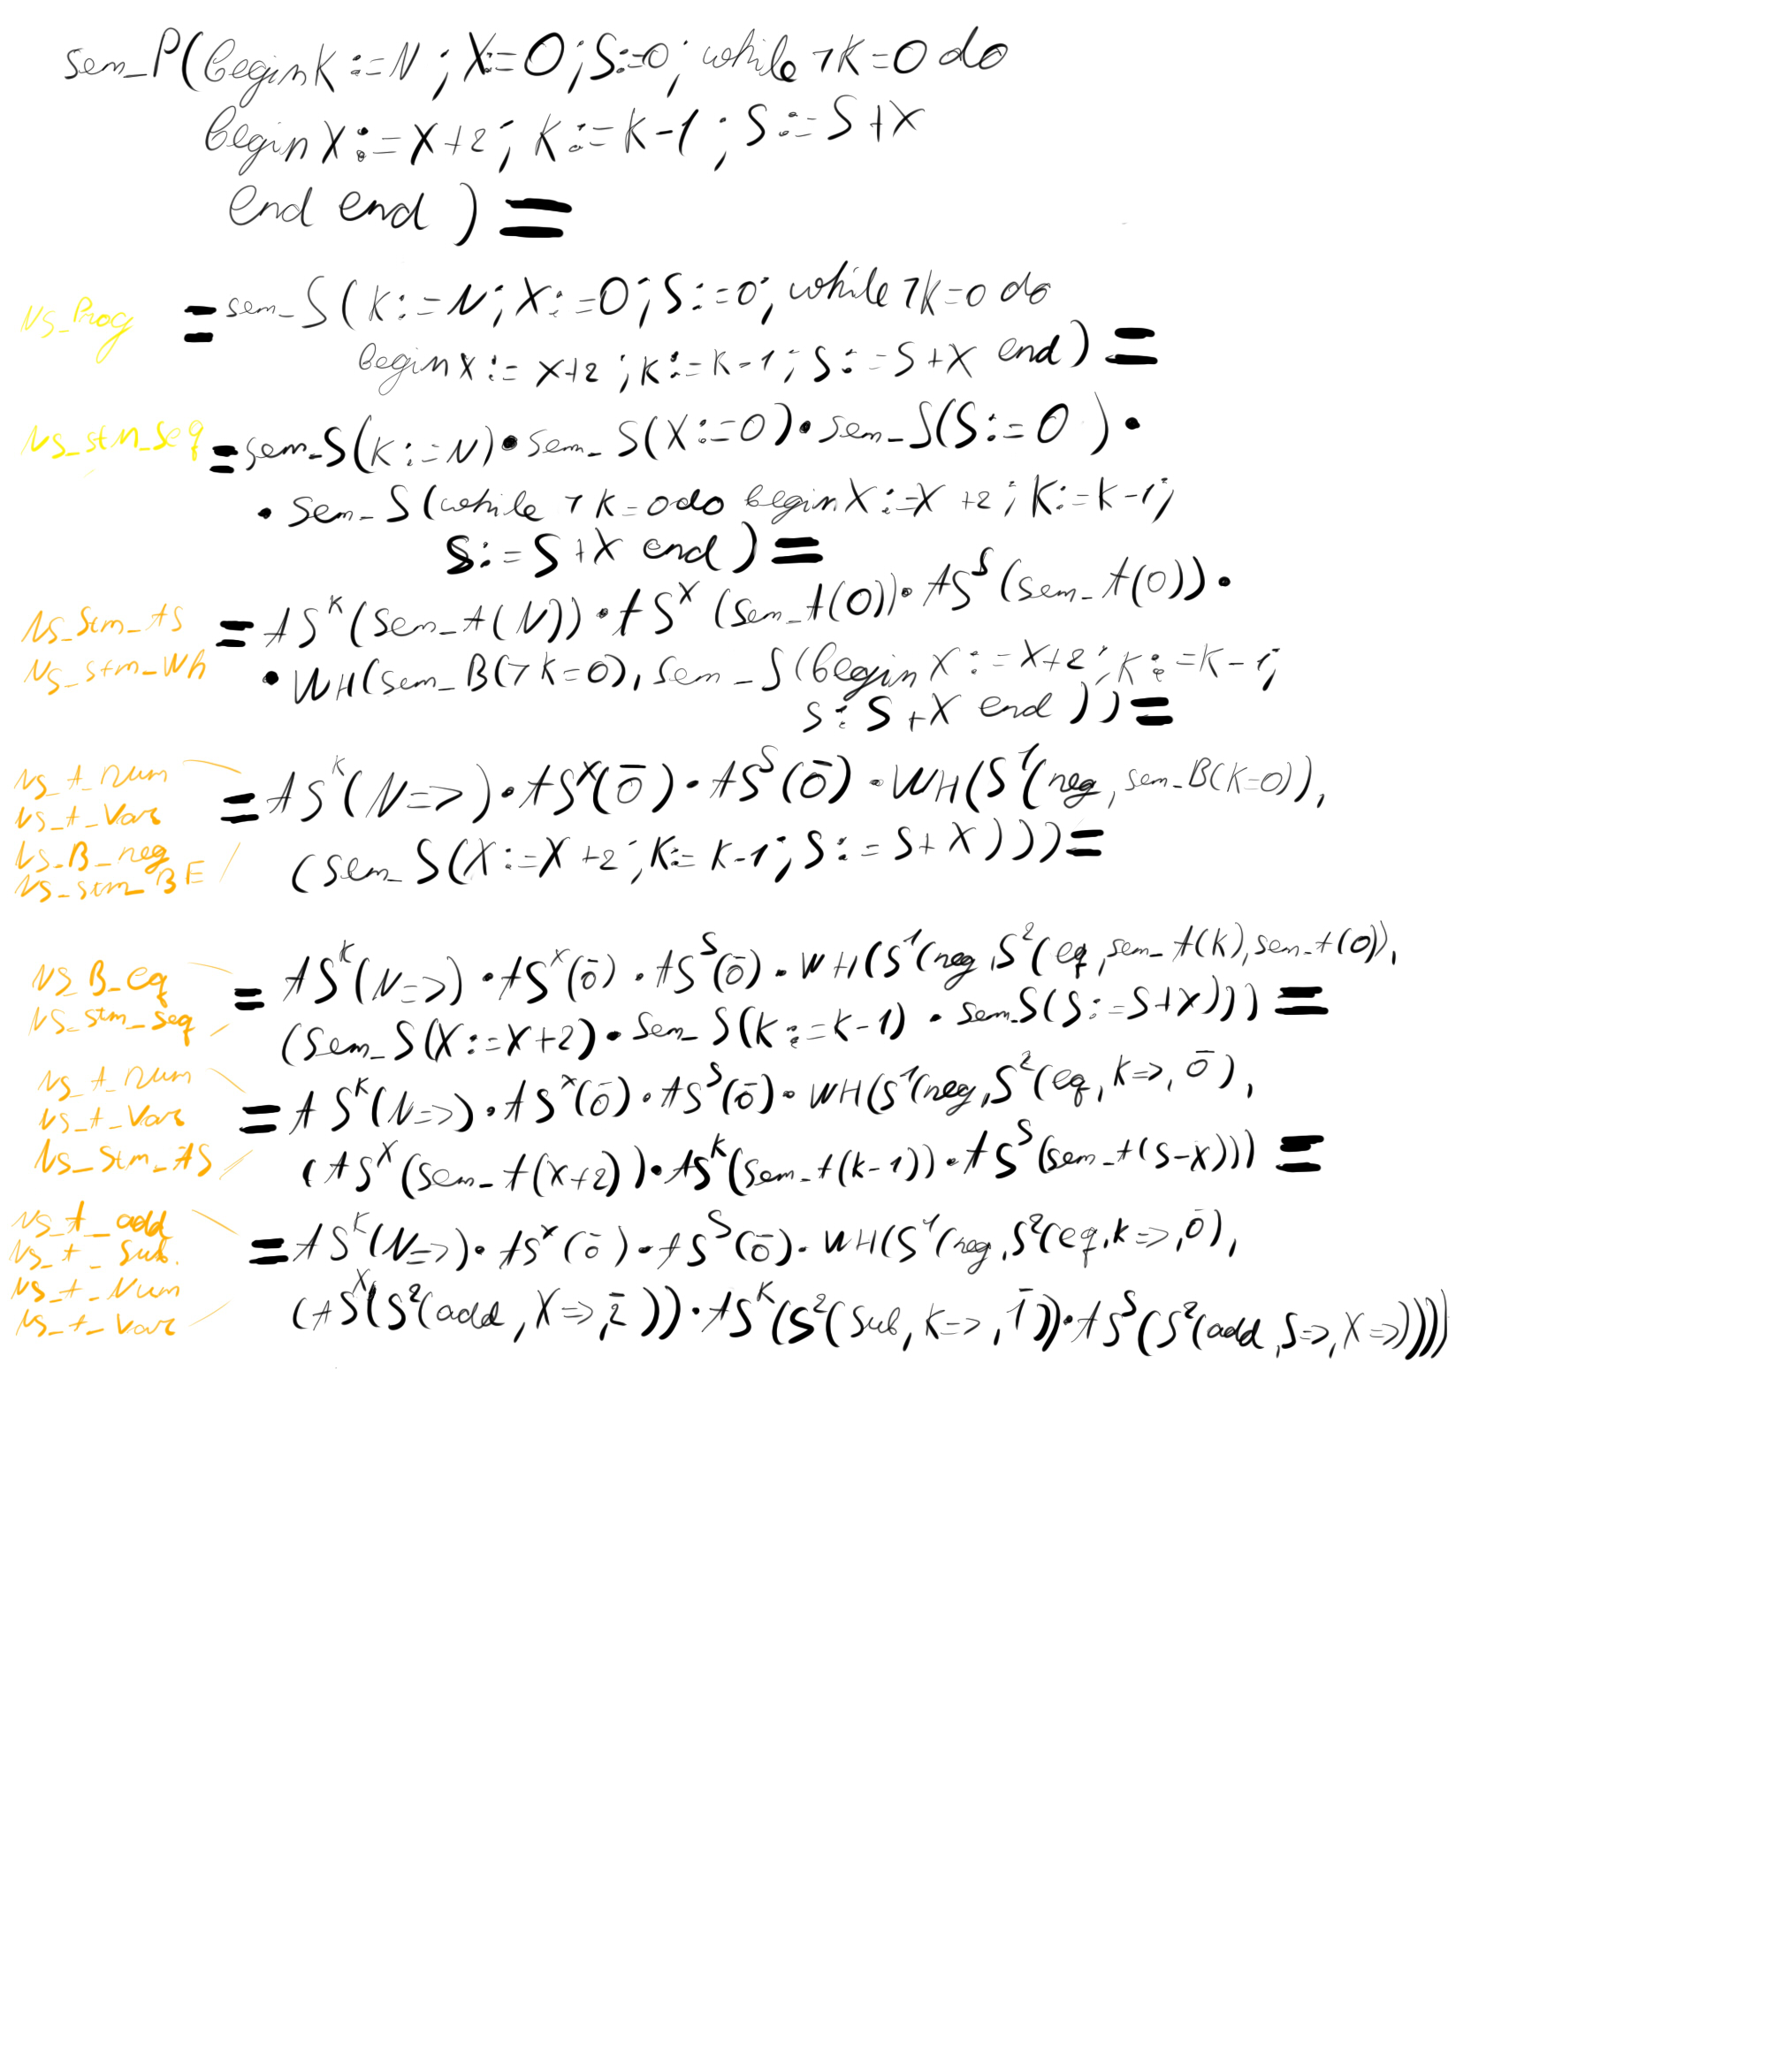 sem_P(begin K:=N; X:=0; S:=0; while ¬K=0 do
begin X:=X+2; K:=K-1; S:=S+X
end end ) =
NS_Prog = sem_S(K:=N; X:=0; S:=0; while ¬K=0 do
begin X:=X+2; K:=K-1; S:=S+X end) =
NS_stm_Seq = sem_S(K:=N)•sem_S(X:=0)•sem_S(S:=0)•
•sem_S(while ¬K=0 do begin X:=X+2; K:=K-1;
S:=S+X end) =
NS_Stm_AS = AS^K(sem_A(N))•AS^X(sem_A(0))•AS^S(sem_A(0))•
NS_stm_Wh •WH(sem_B(¬K=0), sem_S(begin X:=X+2; K:=K-1;
S:S+X end)) =
NS_A_num
NS_A_Var = AS^K(N=>)•AS^X(0̄)•AS^S(0̄)•WH(S^1(neg, sem_B(K=0)),
NS_B_neg
NS_stm_BE (sem_S(X:=X+2; K:=K-1; S:=S+X)))) =
NS_B_eq = AS^K(N=>)•AS^X(0̄)•AS^S(0̄)•WH(S^1(neg, S^2(eq, sem_A(K), sem_A(0)),
NS_stm_seq (sem_S(X:=X+2)•sem_S(K:=K-1)•sem_S(S:=S+X))) =
NS_A_num
NS_A_Var = AS^K(N=>)•AS^X(0̄)•AS^S(0̄)•WH(S^1(neg, S^2(eq, K=>, 0̄),
NS_Stm_AS (AS^X(sem_A(X+2))•AS^K(sem_A(K-1))•AS^S(sem_A(S-X))) =
NS_A_add
NS_A_Sub. = AS^K(N=>)•AS^X(0̄)•AS^S(0̄)•WH(S^1(neg, S^2(eq, K=>, 0̄),
NS_A_Num
NS_A_Var (AS^X(S^2(add, X=>, 2̄))•AS^K(S^2(sub, K=>, 1̄))•AS^S(S^2(add, S=>, X=>))))